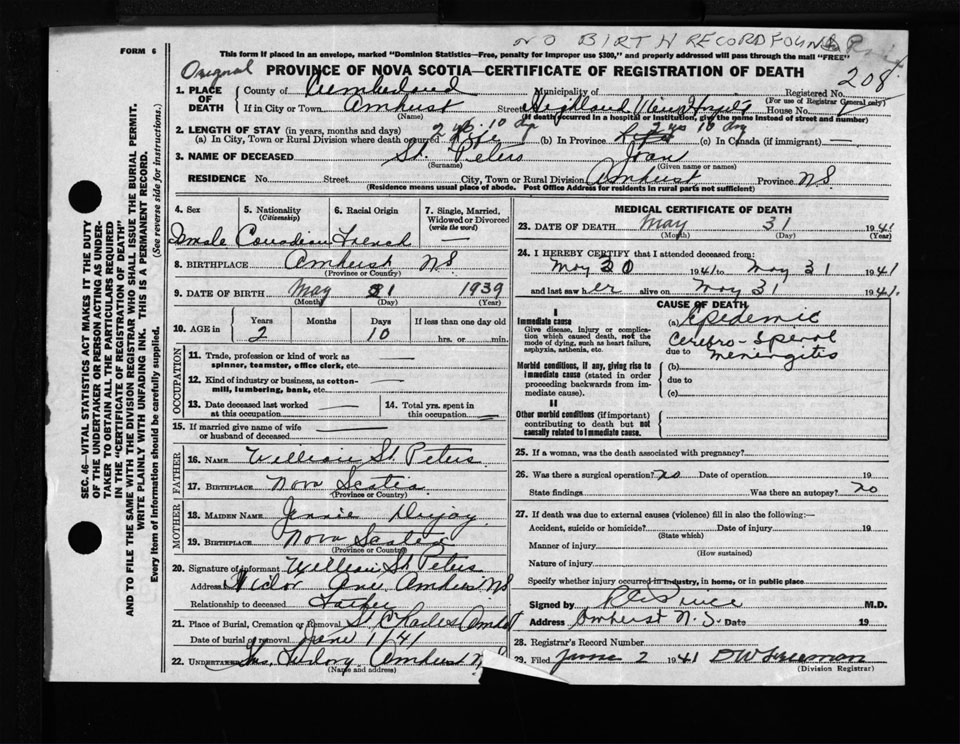 NO BIRTH RECORD FOUND
FORM 6
This form if placed in an envelope, marked "Dominion Statistics—Free, penalty for improper use $300," and properly addressed will pass through the mail "FREE"
Original PROVINCE OF NOVA SCOTIA—CERTIFICATE OF REGISTRATION OF DEATH
208
1. PLACE OF DEATH
County of Cumberland Municipality of Registered No.
(For use of Registrar General only)
If in City or Town Amherst Street Highland View House No.
(Name) (If death occurred in a hospital or institution, give the name instead of street and number)
2. LENGTH OF STAY (in years, months and days) 2 yrs. 10 dys
(a) In City, Town or Rural Division where death occurred Life (b) In Province 2 yrs 10 dys (c) In Canada (if immigrant) —
3. NAME OF DECEASED St. Peters Joan
(Surname) (Given name or names)
RESIDENCE No. Street City, Town or Rural Division Amherst Province N.S.
(Residence means usual place of abode. Post Office Address for residents in rural parts not sufficient)
4. Sex 5. Nationality (Citizenship) 6. Racial Origin 7. Single, Married, Widowed or Divorced (write the word)
Female Canadian French —
8. BIRTHPLACE Amherst N.S.
(Province or Country)
9. DATE OF BIRTH May 21 1939
(Month) (Day) (Year)
10. AGE in Years Months Days If less than one day old
2 10 hrs. or min.
OCCUPATION
11. Trade, profession or kind of work as spinner, teamster, office clerk, etc. —
12. Kind of industry or business, as cotton-mill, lumbering, bank, etc. —
13. Date deceased last worked at this occupation — 14. Total yrs. spent in this occupation —
15. If married give name of wife or husband of deceased —
FATHER
16. NAME William St. Peters
17. BIRTHPLACE Nova Scotia
(Province or Country)
MOTHER
18. MAIDEN NAME Jennie
19. BIRTHPLACE Nova Scotia
(Province or Country)
20. Signature of informant William St Peters
Address Victor Ave. Amherst NS
Relationship to deceased Father
21. Place of Burial, Cremation or Removal St Charles Amherst
Date of burial or removal June 1/41
22. Undertaker Amherst N.S.
(Name and address)
MEDICAL CERTIFICATE OF DEATH
23. DATE OF DEATH May 31 1941
(Month) (Day) (Year)
24. I HEREBY CERTIFY that I attended deceased from:
May 30 1941 to May 31 1941
and last saw her alive on May 31 1941.
CAUSE OF DEATH
I
Immediate cause
Give disease, injury or complication which caused death, not the mode of dying, such as heart failure, asphyxia, asthenia, etc.
(a) Epidemic
Cerebro-Spinal
due to Meningitis
Morbid conditions, if any, giving rise to immediate cause (stated in order proceeding backwards from immediate cause).
(b)
due to
(c)
II
Other morbid conditions (if important) contributing to death but not causally related to immediate cause.
25. If a woman, was the death associated with pregnancy?
26. Was there a surgical operation? no Date of operation 19
State findings Was there an autopsy? no
27. If death was due to external causes (violence) fill in also the following:—
Accident, suicide or homicide? Date of injury 19
(State which)
Manner of injury
(How sustained)
Nature of injury
Specify whether injury occurred in industry, in home, or in public place
Signed by M.D.
Address Amherst N.S. Date 19
28. Registrar's Record Number
29. Filed June 2 1941 Freeman
(Division Registrar)
SEC. 46—VITAL STATISTICS ACT MAKES IT THE DUTY
OF THE UNDERTAKER OR PERSON ACTING AS UNDERTAKER TO OBTAIN ALL THE PARTICULARS REQUIRED
IN THE "CERTIFICATE OF REGISTRATION OF DEATH"
AND TO FILE THE SAME WITH THE DIVISION REGISTRAR WHO SHALL ISSUE THE BURIAL PERMIT.
WRITE PLAINLY WITH UNFADING INK. THIS IS A PERMANENT RECORD.
Every item of Information should be carefully supplied. (See reverse side for instructions.)